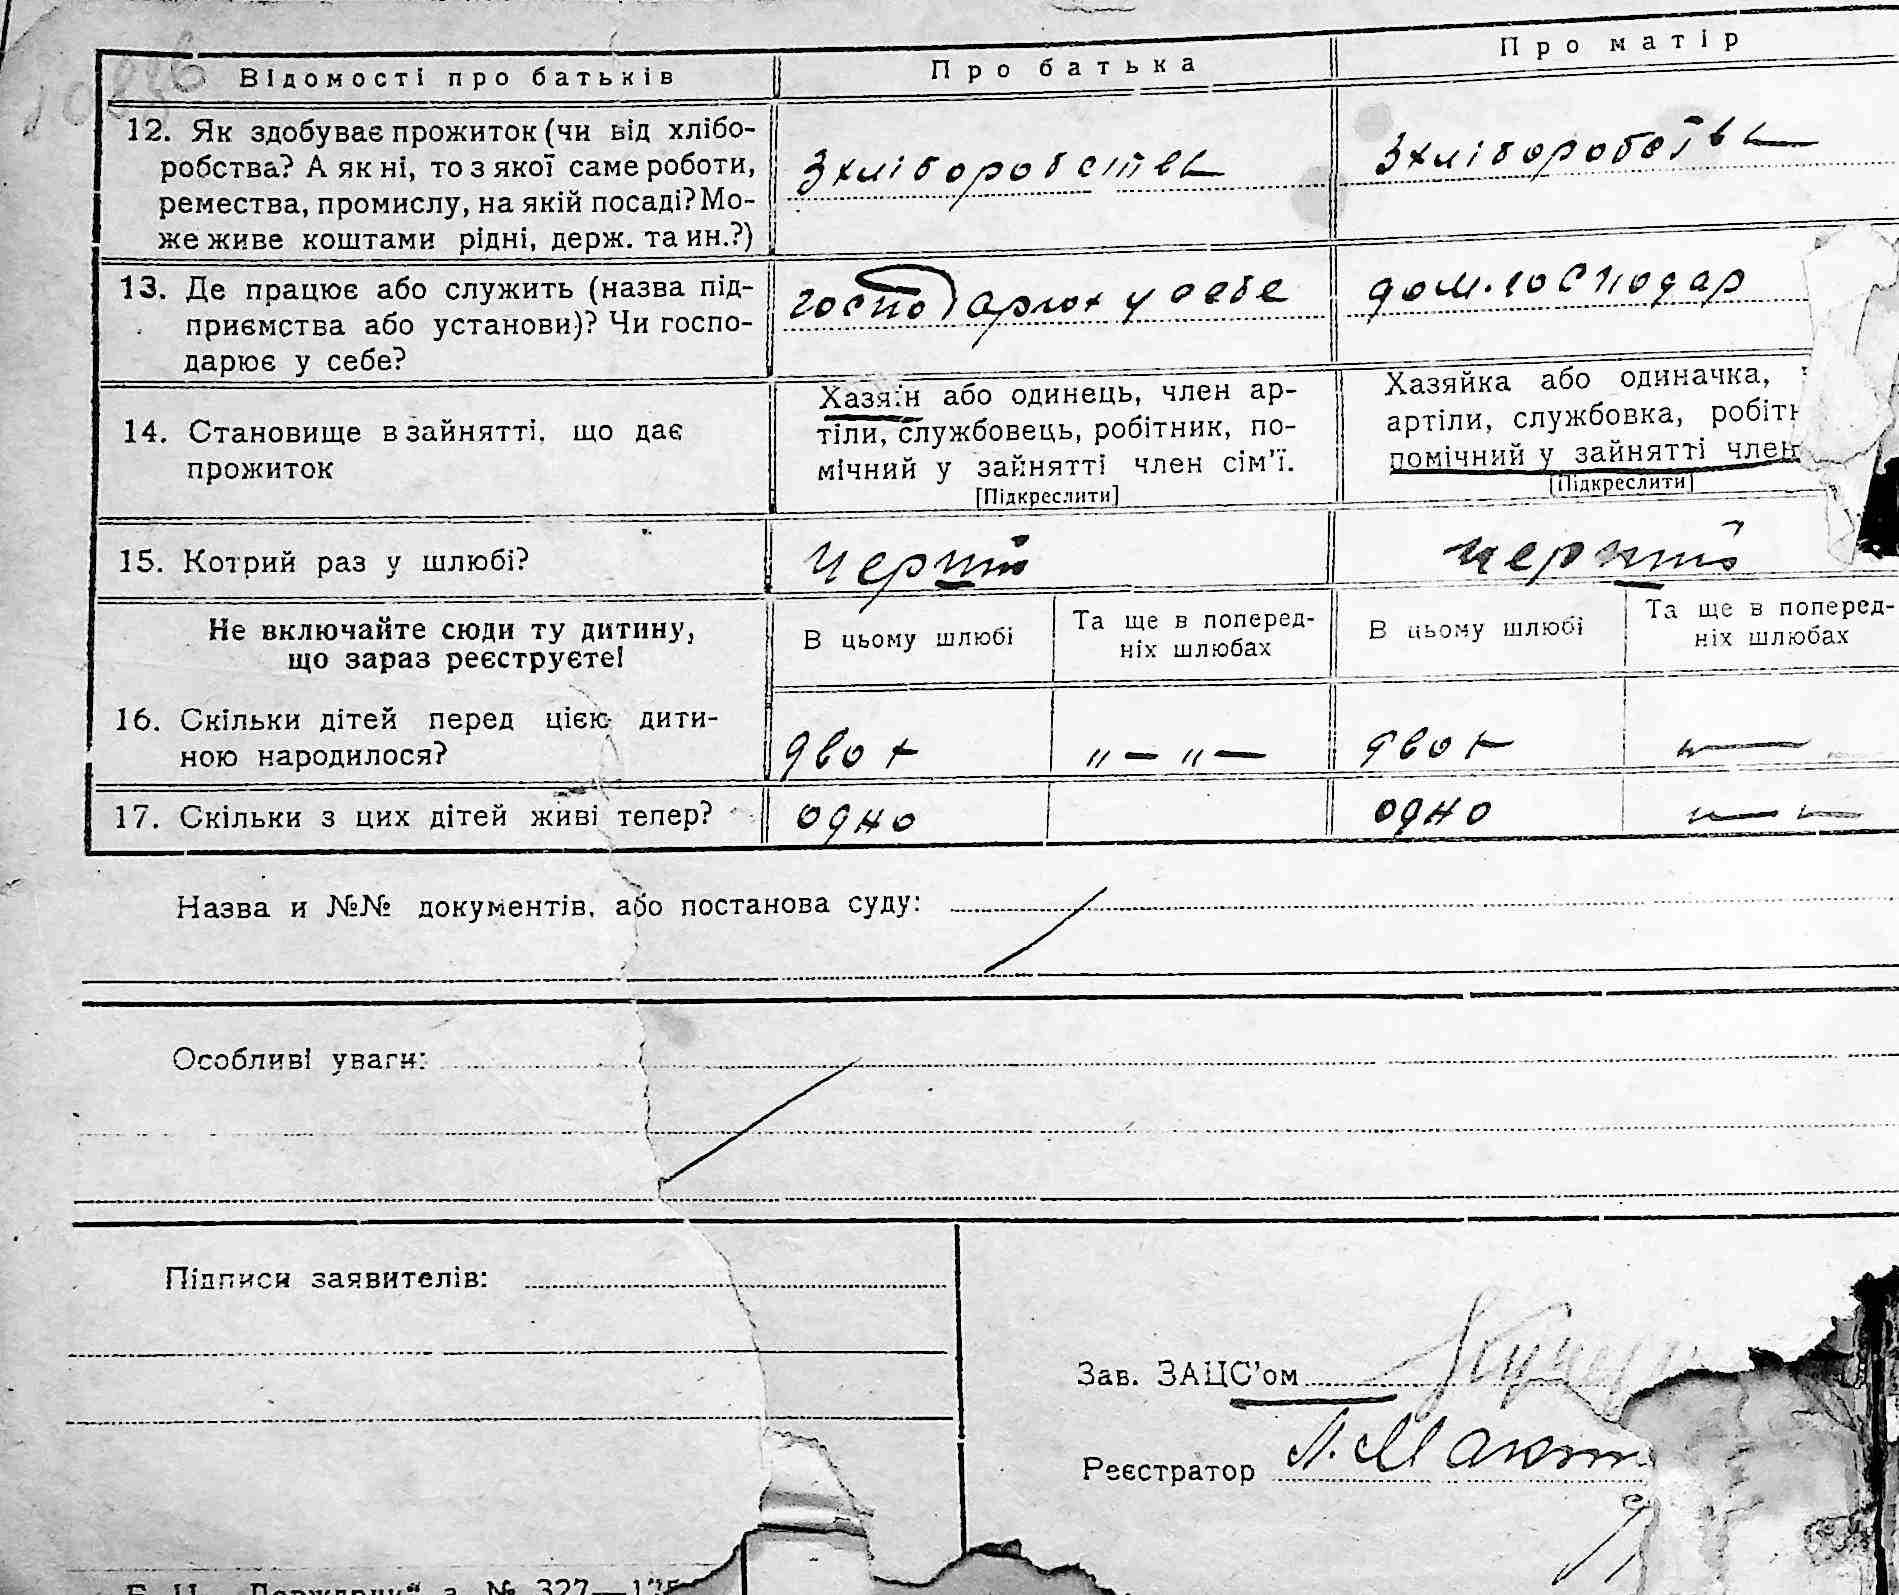 Відомості про батьків
Про батька
Про матір
12. Як здобуває прожиток (чи від хлібо-
робства? А як ні, то з якої саме роботи,
ремества, промислу, на якій посаді? Мо-
же живе коштами рідні, держ. та ин.?)
З хліборобства
З хліборобства
13. Де працює або служить (назва під-
приємства або установи)? Чи госпо-
дарює у себе?
господарює у себе
дом. господар
14. Становище в зайнятті, що дає
прожиток
Хазяїн або одинець, член ар-
тіли, службовець, робітник, по-
мічний у зайнятті член сім'ї.
[Підкреслити]
Хазяйка або одиначка,
артіли, службовка, робітн
помічний у зайнятті член
[Підкреслити]
15. Котрий раз у шлюбі?
перший
перший
Не включайте сюди ту дитину,
що зараз реєструєте!
В цьому шлюбі
Та ще в поперед-
ніх шлюбах
В цьому шлюбі
Та ще в поперед-
ніх шлюбах
16. Скільки дітей перед цією дити-
ною народилося?
двох
" — " —
двох
17. Скільки з цих дітей живі тепер?
одно
одно
Назва и №№ документів, або постанова суду:
Особливі уваги:
Підписи заявителів:
Зав. ЗАЦС'ом
Реєстратор Л. М
№ 327—125